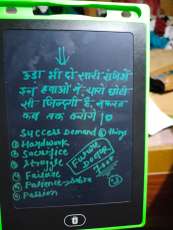 उड़ा भी दो सारी रंजिशें
इन हवाओं में यारो छोटी
सी जिन्दगी है नफरत
कब तक करोगे।
Success Demand 6 things
① Hardwork
② Sacrifice
③ Struggle
④ Failure
⑤ Patience → Sabra
⑥ Passion
Future
Doctor